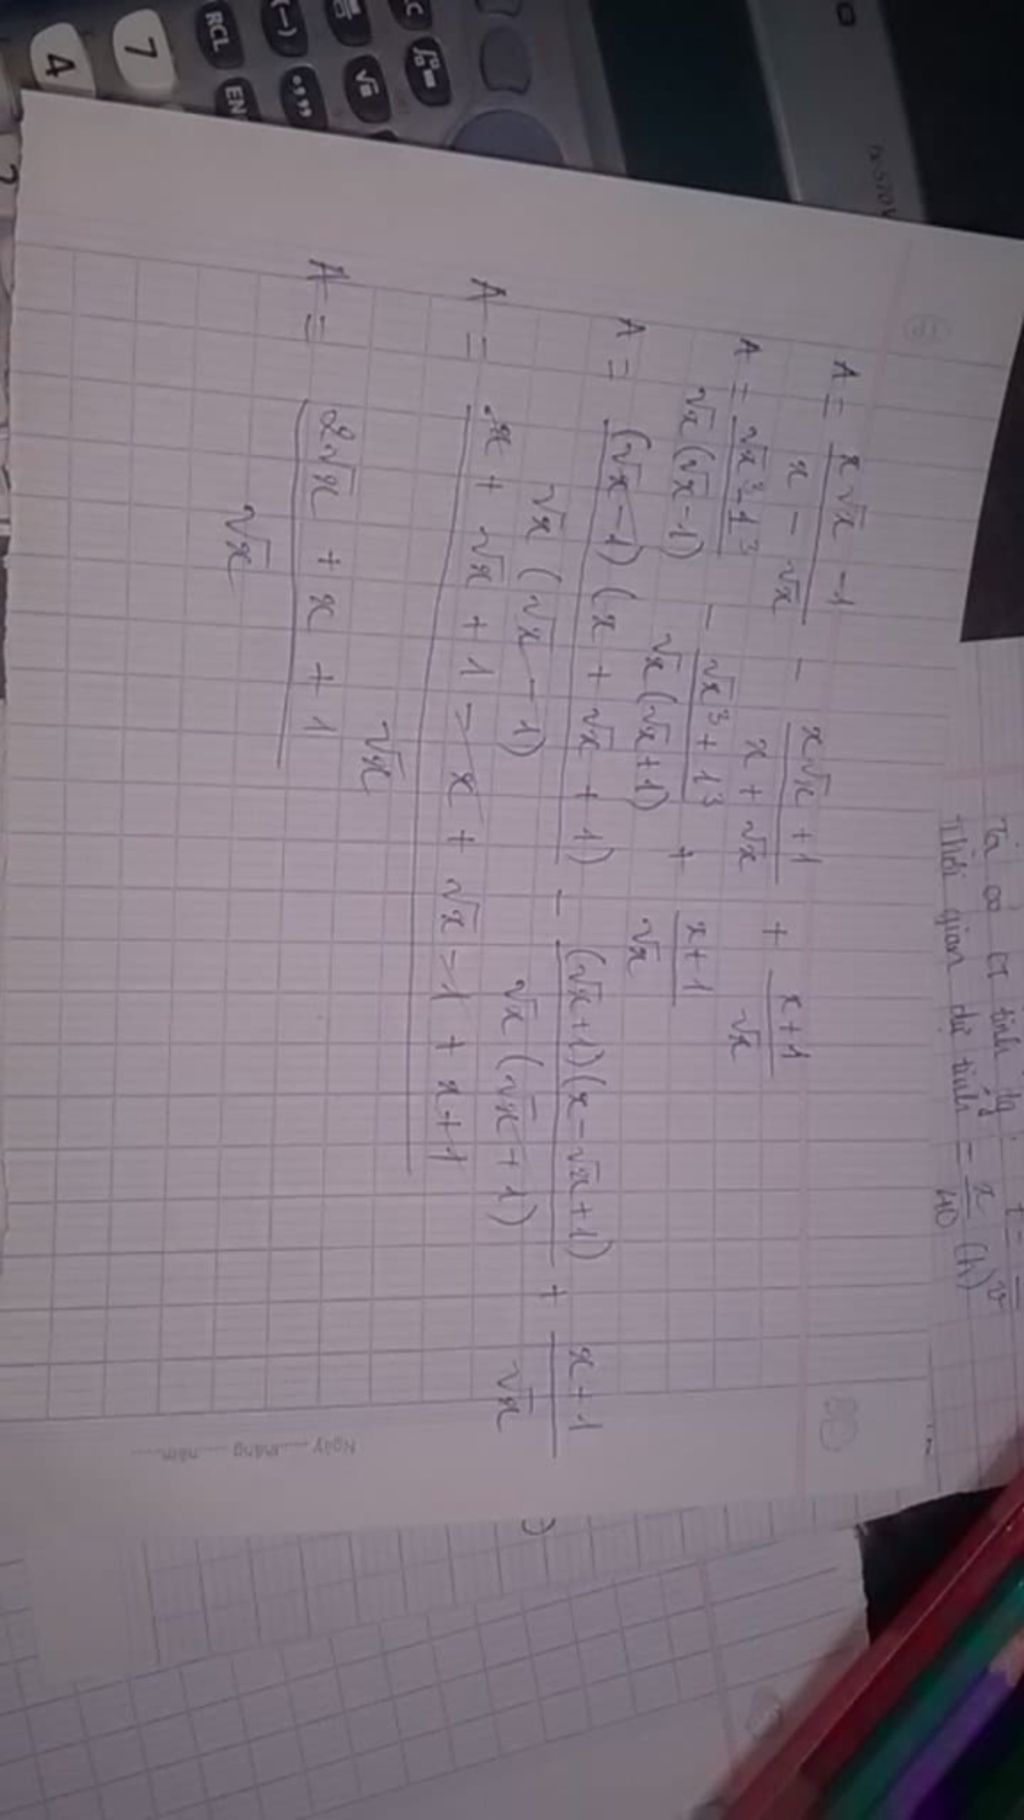 Ta có CT tính
t = 
Thời gian dự tính = x/40 (h)
A = (x√x - 1)/(x - √x) - (x√x + 1)/(x + √x) + (x+1)/√x
A = (√x³ - 1³)/(√x(√x - 1)) - (√x³ + 1³)/(√x(√x + 1)) + (x+1)/√x
A = ((√x - 1)(x + √x + 1))/(√x(√x - 1)) - ((√x+1)(x - √x + 1))/(√x(√x + 1)) + (x+1)/√x
A = (x + √x + 1 - x + √x - 1 + x+1)/√x
A = (2√x + x + 1)/√x
Ngày ..... tháng ..... năm .....
RCL
EN
(−)
7
4